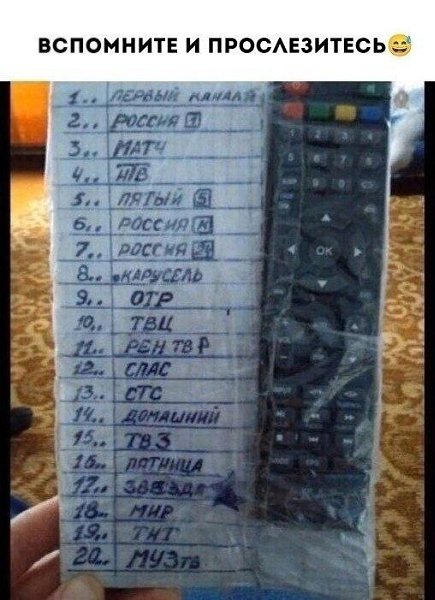 ВСПОМНИТЕ И ПРОСЛЕЗИТЕСЬ😅
1.. ПЕРВЫЙ КАНАЛ
2.. РОССИЯ 1
3.. МАТЧ
4.. НТВ
5.. ПЯТЫЙ 5
6.. РОССИЯ К
7.. РОССИЯ 24
8.. КАРУСЕЛЬ
9.. ОТР
10.. ТВЦ
11.. РЕН ТВ Р
12.. СПАС
13.. СТС
14.. ДОМАШНИЙ
15.. ТВ3
16.. ПЯТНИЦА
17.. ЗВЕЗДА
18.. МИР
19.. ТНТ
20.. МУЗТВ
1 2 3 4
5 6 7 8
9 0
OK